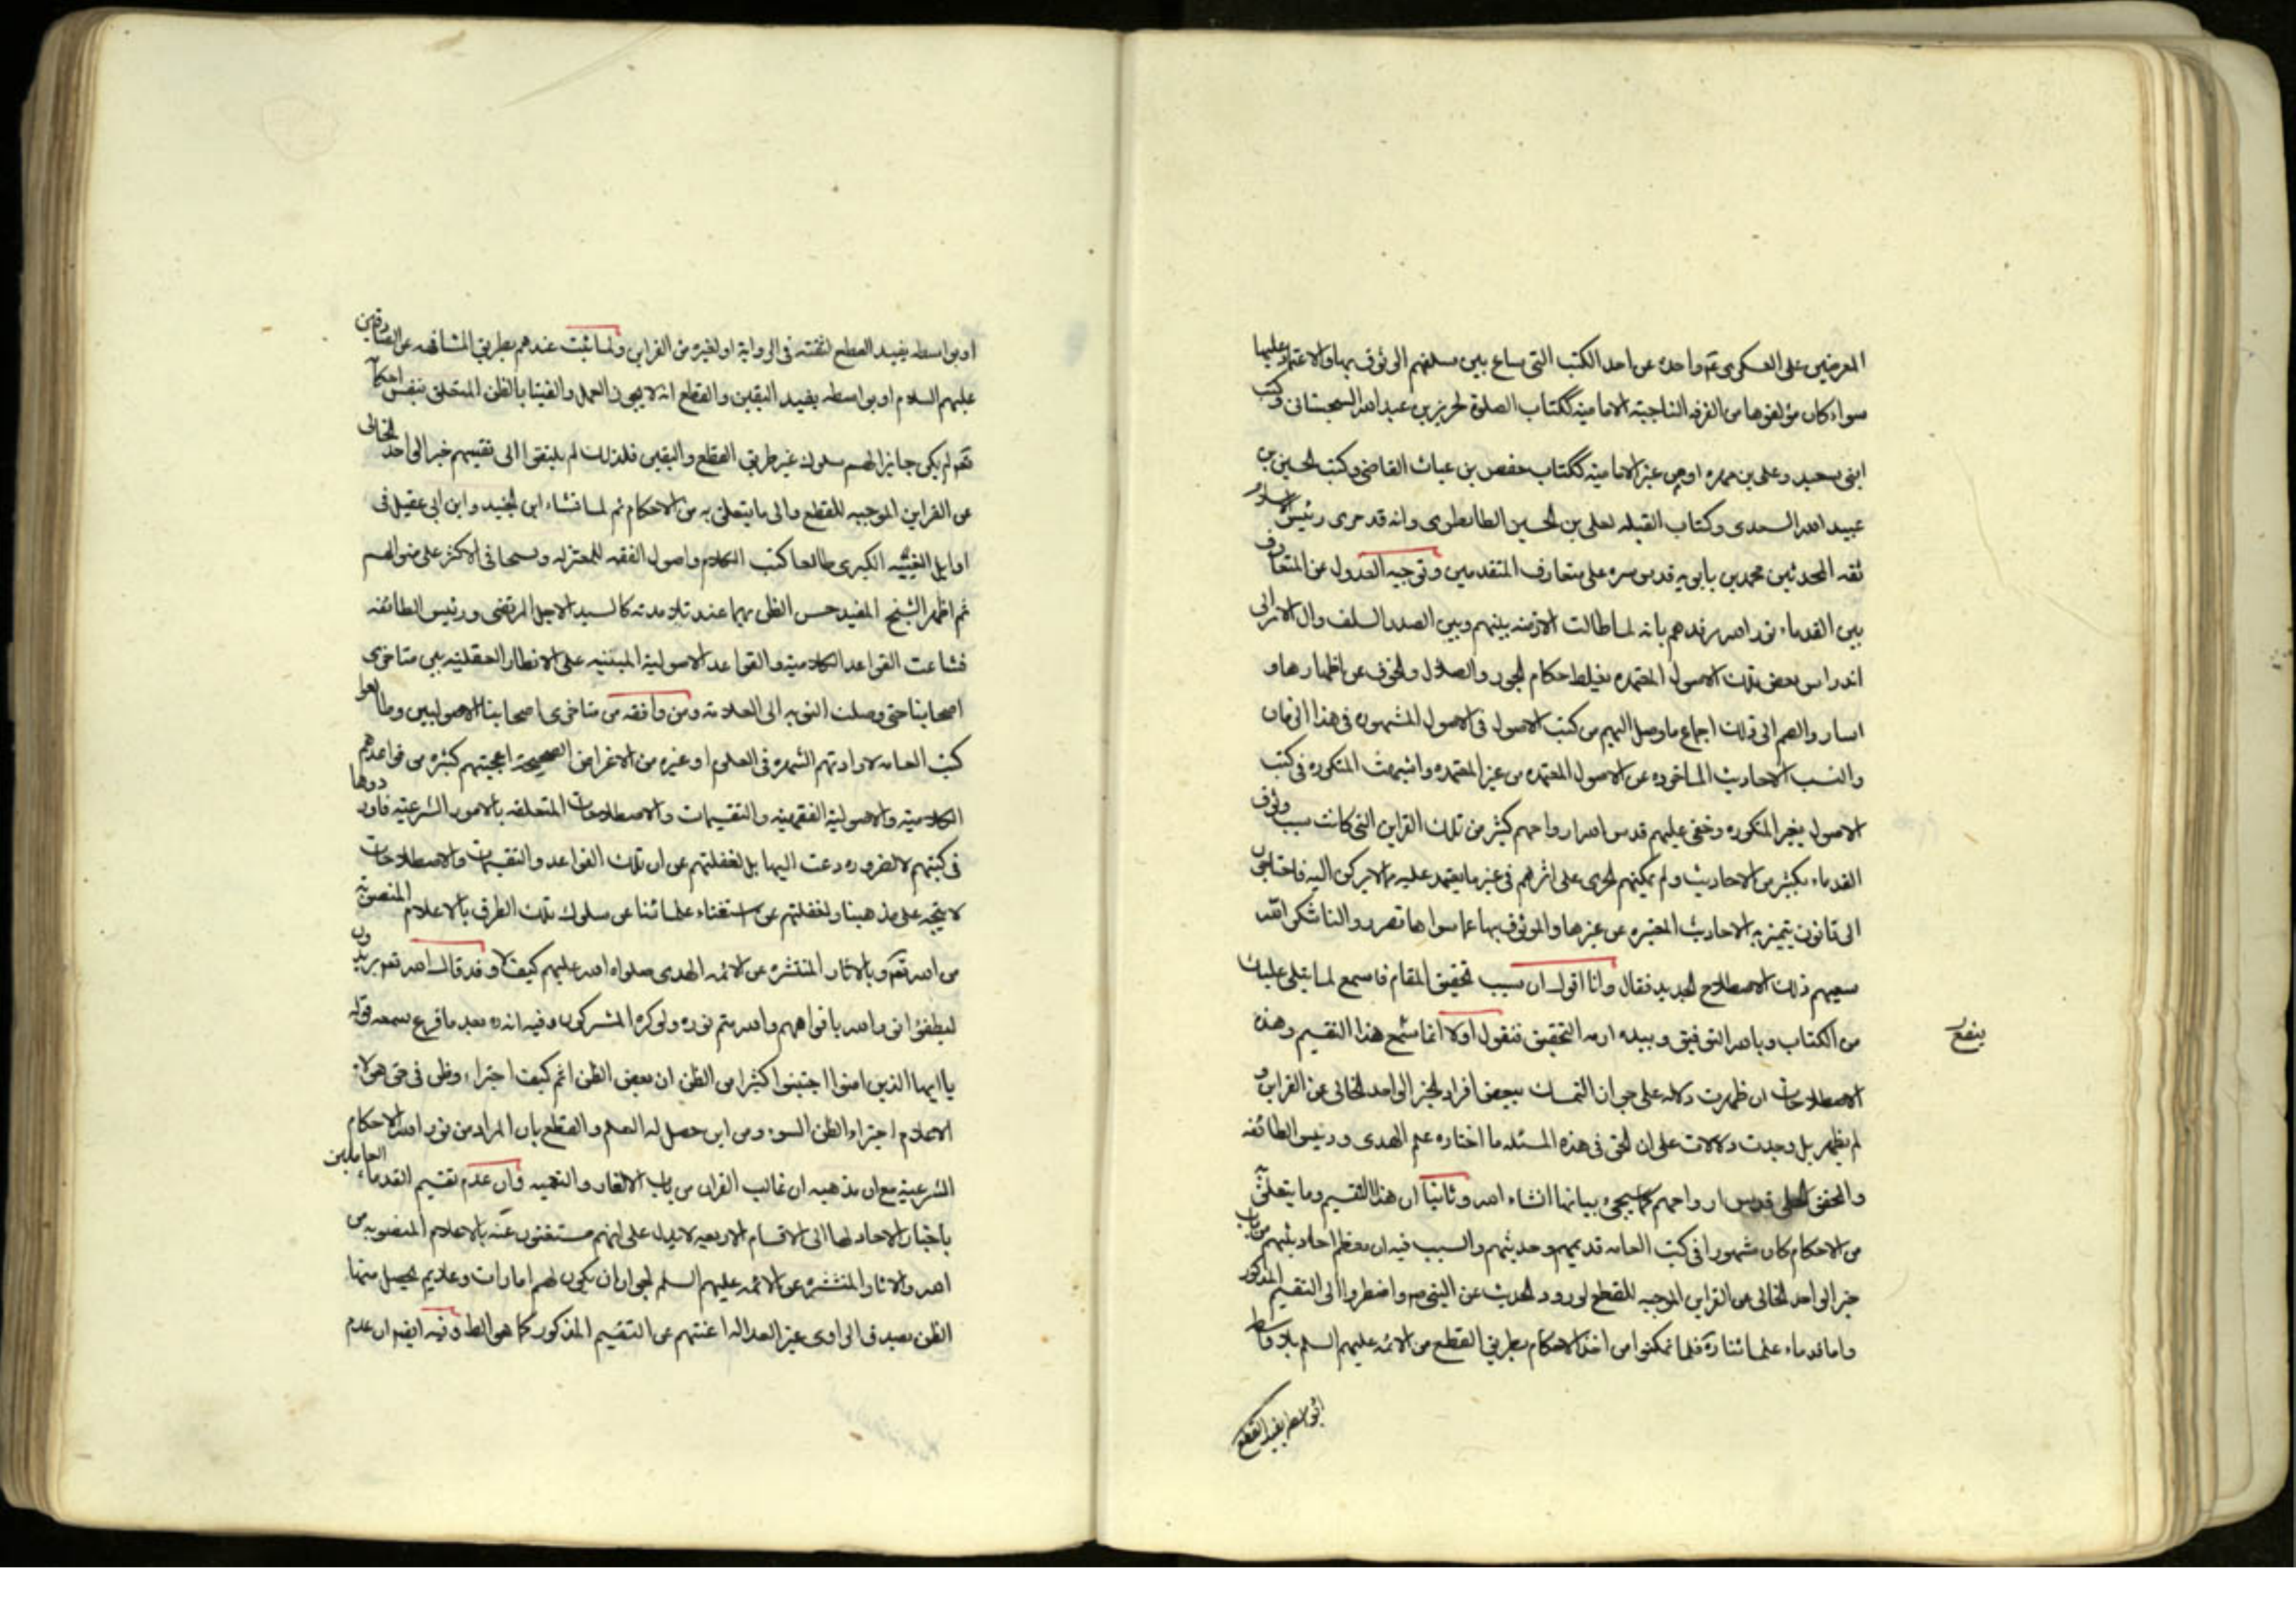 المعروضين على العسكرى ع واحده عن احد الكتب التى شاع بين سلفهم الوثوق بها والاعتماد عليها
سواء كان مؤلفوها من الفرقه الناجيته الاماميه ككتاب الصلوة لحريز بن عبد الله السجستانى وكتب
ابنى سعيد وعلى بن مهزيار او من غير الاماميه ككتاب حفص بن غياث القاضى وكتب الحسين بن
عبيد الله السعدى وكتاب القبله لعلى بن الحسين الطاطرى وانه قد جرى رئيس
ثقه المحدثين محمد بن بابويه قدس سره على متعارف المتقدمين وتوجيه العدول عن المتعارف
بين القدماء نور الله مرقدهم بانه لما طالت الازمنه بينهم وبين الصدر السلف وال الامر الى
اندراس بعض تلك الاصول المعتمده حكام الجور والضلال والخوف عن اظهارها و
الى ذلك اجماع ما وصل اليهم من كتب الاصول فى الاصول المشهوره فى هذا الزمان
والتبست الاحاديث الماخوذه عن الاصول المعتمده من غير المعتمده واشتبهت المتكرره فى كتب
الاصول بغير المتكرره وخفى عليهم قدس اسرار واحهم كثير من تلك القراين التى كانت سبب وثوق
القدماء بكثير من الاحاديث ولم يمكنهم الجرى على اثرهم فى غير ما يعتمد عليه مما لا يركن اليه فاحتاجوا
الى قانون يتميز به الاحاديث المعتبره عن غيرها والموثوق بها عما سواها فقرروا لنا شكر الله
سعيهم ذلك الاصطلاح الجديد فقال وانا اقول ان سبب تحقيق المقام فاسمع لما يتلى عليك
من الكتاب وبالله التوفيق وبيده ازمه التحقيق فنقول اولا انما هذا التقسيم وهذه
الاصطلاحات ان ظهرت دلاله على جواز التمسك ببعض افراد الخبر الواحد الخالى عن القراين و
لم يظهر بل وجدت دلالات على ان الحق فى هذه المسئله ما اختاره علم الهدى ورئيس الطائفه
والمحقق الحلى قدس ارواحهم كما سيجىء بيانها انشاء الله وثانيا ان هذا التقسيم وما يتعلق
من الاحكام كان مشهورا فى كتب العامه قديمهم وحديثهم والسبب فيه ان معظم احاديثهم من باب
خبر الواحد الخالى عن القراين الموجبه للقطع لورود الحديث عن النبى ص واضطروا الى التقسيم المذكور
واما قدماء علمائنا ره فلما تمكنوا من اخذ الاحكام بطريق القطع من الائمه عليهم السلم بلا واسطه
او بواسطه يفيد القطع
او بواسطه يفيد القطع لثقته فى الروايه او لغيره من القراين ولما ثبت عندهم بطريق المشافهه عن الصادقين
عليهم السلام او بواسطه يفيد اليقين والقطع انه لا يجوز العمل والفتيا بالظن المتعلق بنفس احكام
لم يكن جايزا لهم سلوك غير طريق القطع واليقين فلذلك لم يلتفتوا الى تقسيم خبر الواحد الخالى
عن القراين الموجبه للقطع والى ما يتعلق به من الاحكام ثم لما نشاء ابن الجنيد وابن ابى عقيل فى
اوايل الغيبه الكبرى طالعا كتب الكلام واصول الفقه للمعتزله ونسجا فى الاكثر على منوالهم
ثم اظهر الشيخ المفيد حسن الظن بهما عند تلامذته كالسيد الاجل المرتضى ورئيس الطائفه
فشاعت القواعد الكلاميه والقواعد الاصوليه المبنيه على الانظار العقليه بين متاخرى
اصحابنا حتى وصلت النوبه الى العلامه ومن وافقه من متاخرى اصحابنا الاصوليين وطالعوا
كتب العامه لارادتهم الشهره فى العلوم او غيره من الاغراض الصحيحه اعجبتهم كثيره من قواعدهم
الكلاميه والاصوليه الفقهيه والتقسيمات والاصطلاحات المتعلقه بالامور الشرعيه فاوردوها
فى كتبهم لا لضروره دعت اليها بل لغفلتهم عن ان تلك القواعد والتقسيمات والاصطلاحات
لا يتجه على مذهبنا ولغفلتهم عن استغناء علمائنا عن سلوك تلك الطرق بالاعلام المنصوبه
من الله تع وبالاثار المنتشره عن الائمه الهدى صلواه الله عليهم كيف لا وقد قال الله تعم يريدون
ليطفؤا نور الله بافواههم والله متم نوره ولو كره المشركون وفيه انه بعد ما قرع سمعه قوله
يا ايها الذين امنوا اجتنبوا كثيرا من الظن ان بعض الظن اثم كيف اجتراء وظن فى حق هولاء
الاعلام اجتراء الظن السوء ومن اين حصل له العلم والقطع بان المراد من نور الله الاحكام
الشرعيه مع ان مذهبه ان غالب القران من باب الالغاز والتعميه وان عدم تقسيم القدماء العاملين
باخبار الاحاد لها الى الاقسام الاربعه لا يدل على انهم مستغنون عنه بالاعلام المنصوبه من
الله والاثار المنتشره عن الائمه عليهم السلم لجواز ان يكون لهم امارات وعلايم يحصل منها
الظن بصدق الراوى غير العداله اغنتهم عن التقسيم المذكور كما هو الظ وفيه ايضا ان عدم